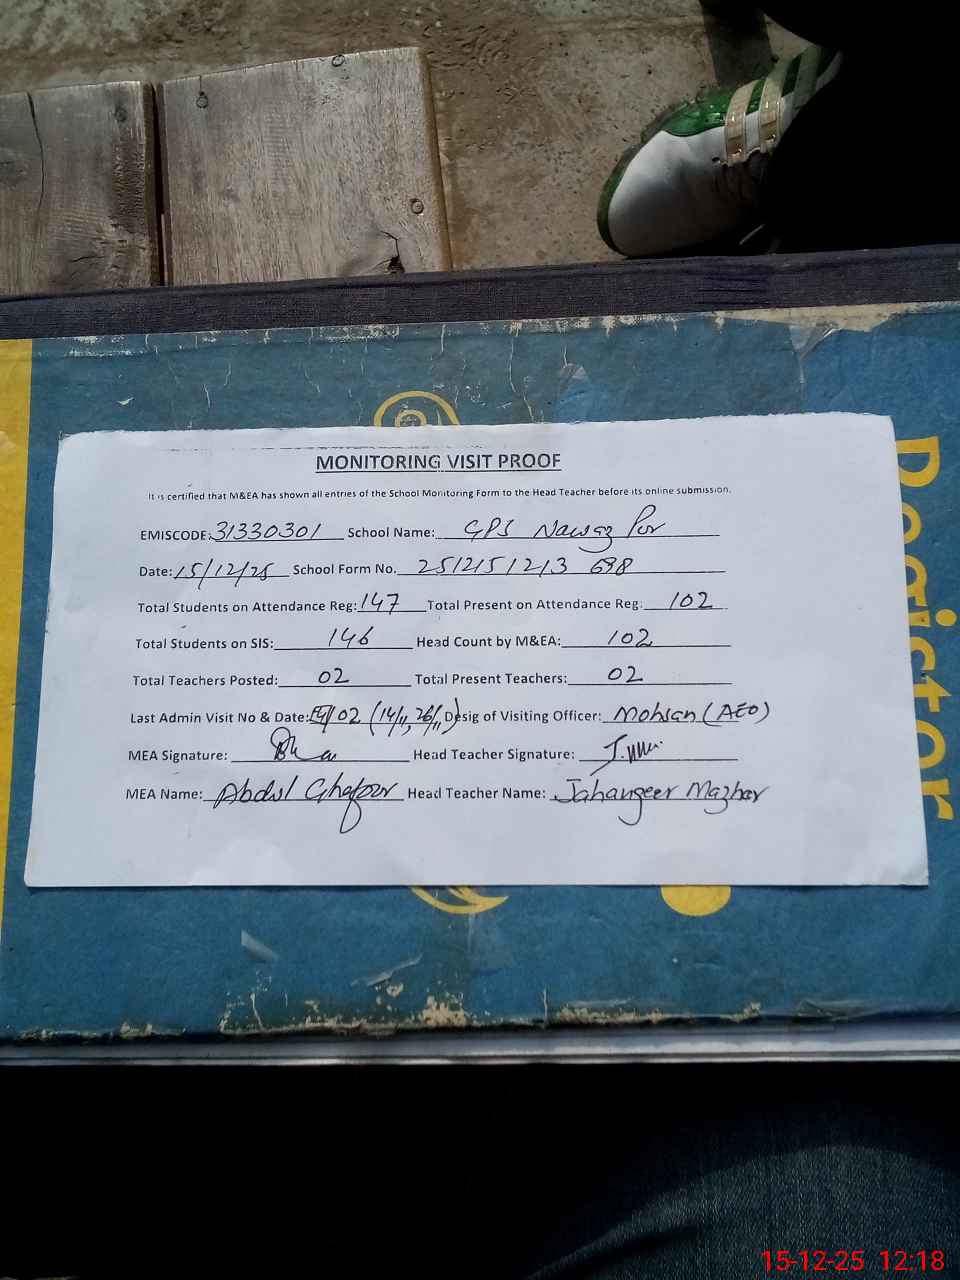 MONITORING VISIT PROOF
It is certified that M&EA has shown all entries of the School Monitoring Form to the Head Teacher before its online submission.
EMISCODE: 31330301 School Name: GPS Nawaz Por
Date: 15/12/25 School Form No. 2512151213 698
Total Students on Attendance Reg: 147 Total Present on Attendance Reg: 102
Total Students on SIS: 146 Head Count by M&EA: 102
Total Teachers Posted: 02 Total Present Teachers: 02
Last Admin Visit No & Date: 02 (14/11, 26/11) Desig of Visiting Officer: Mohsan (AEO)
MEA Signature: Head Teacher Signature:
MEA Name: Abdul Ghafoor Head Teacher Name: Jahangeer Mazhar
Register
15-12-25 12:18